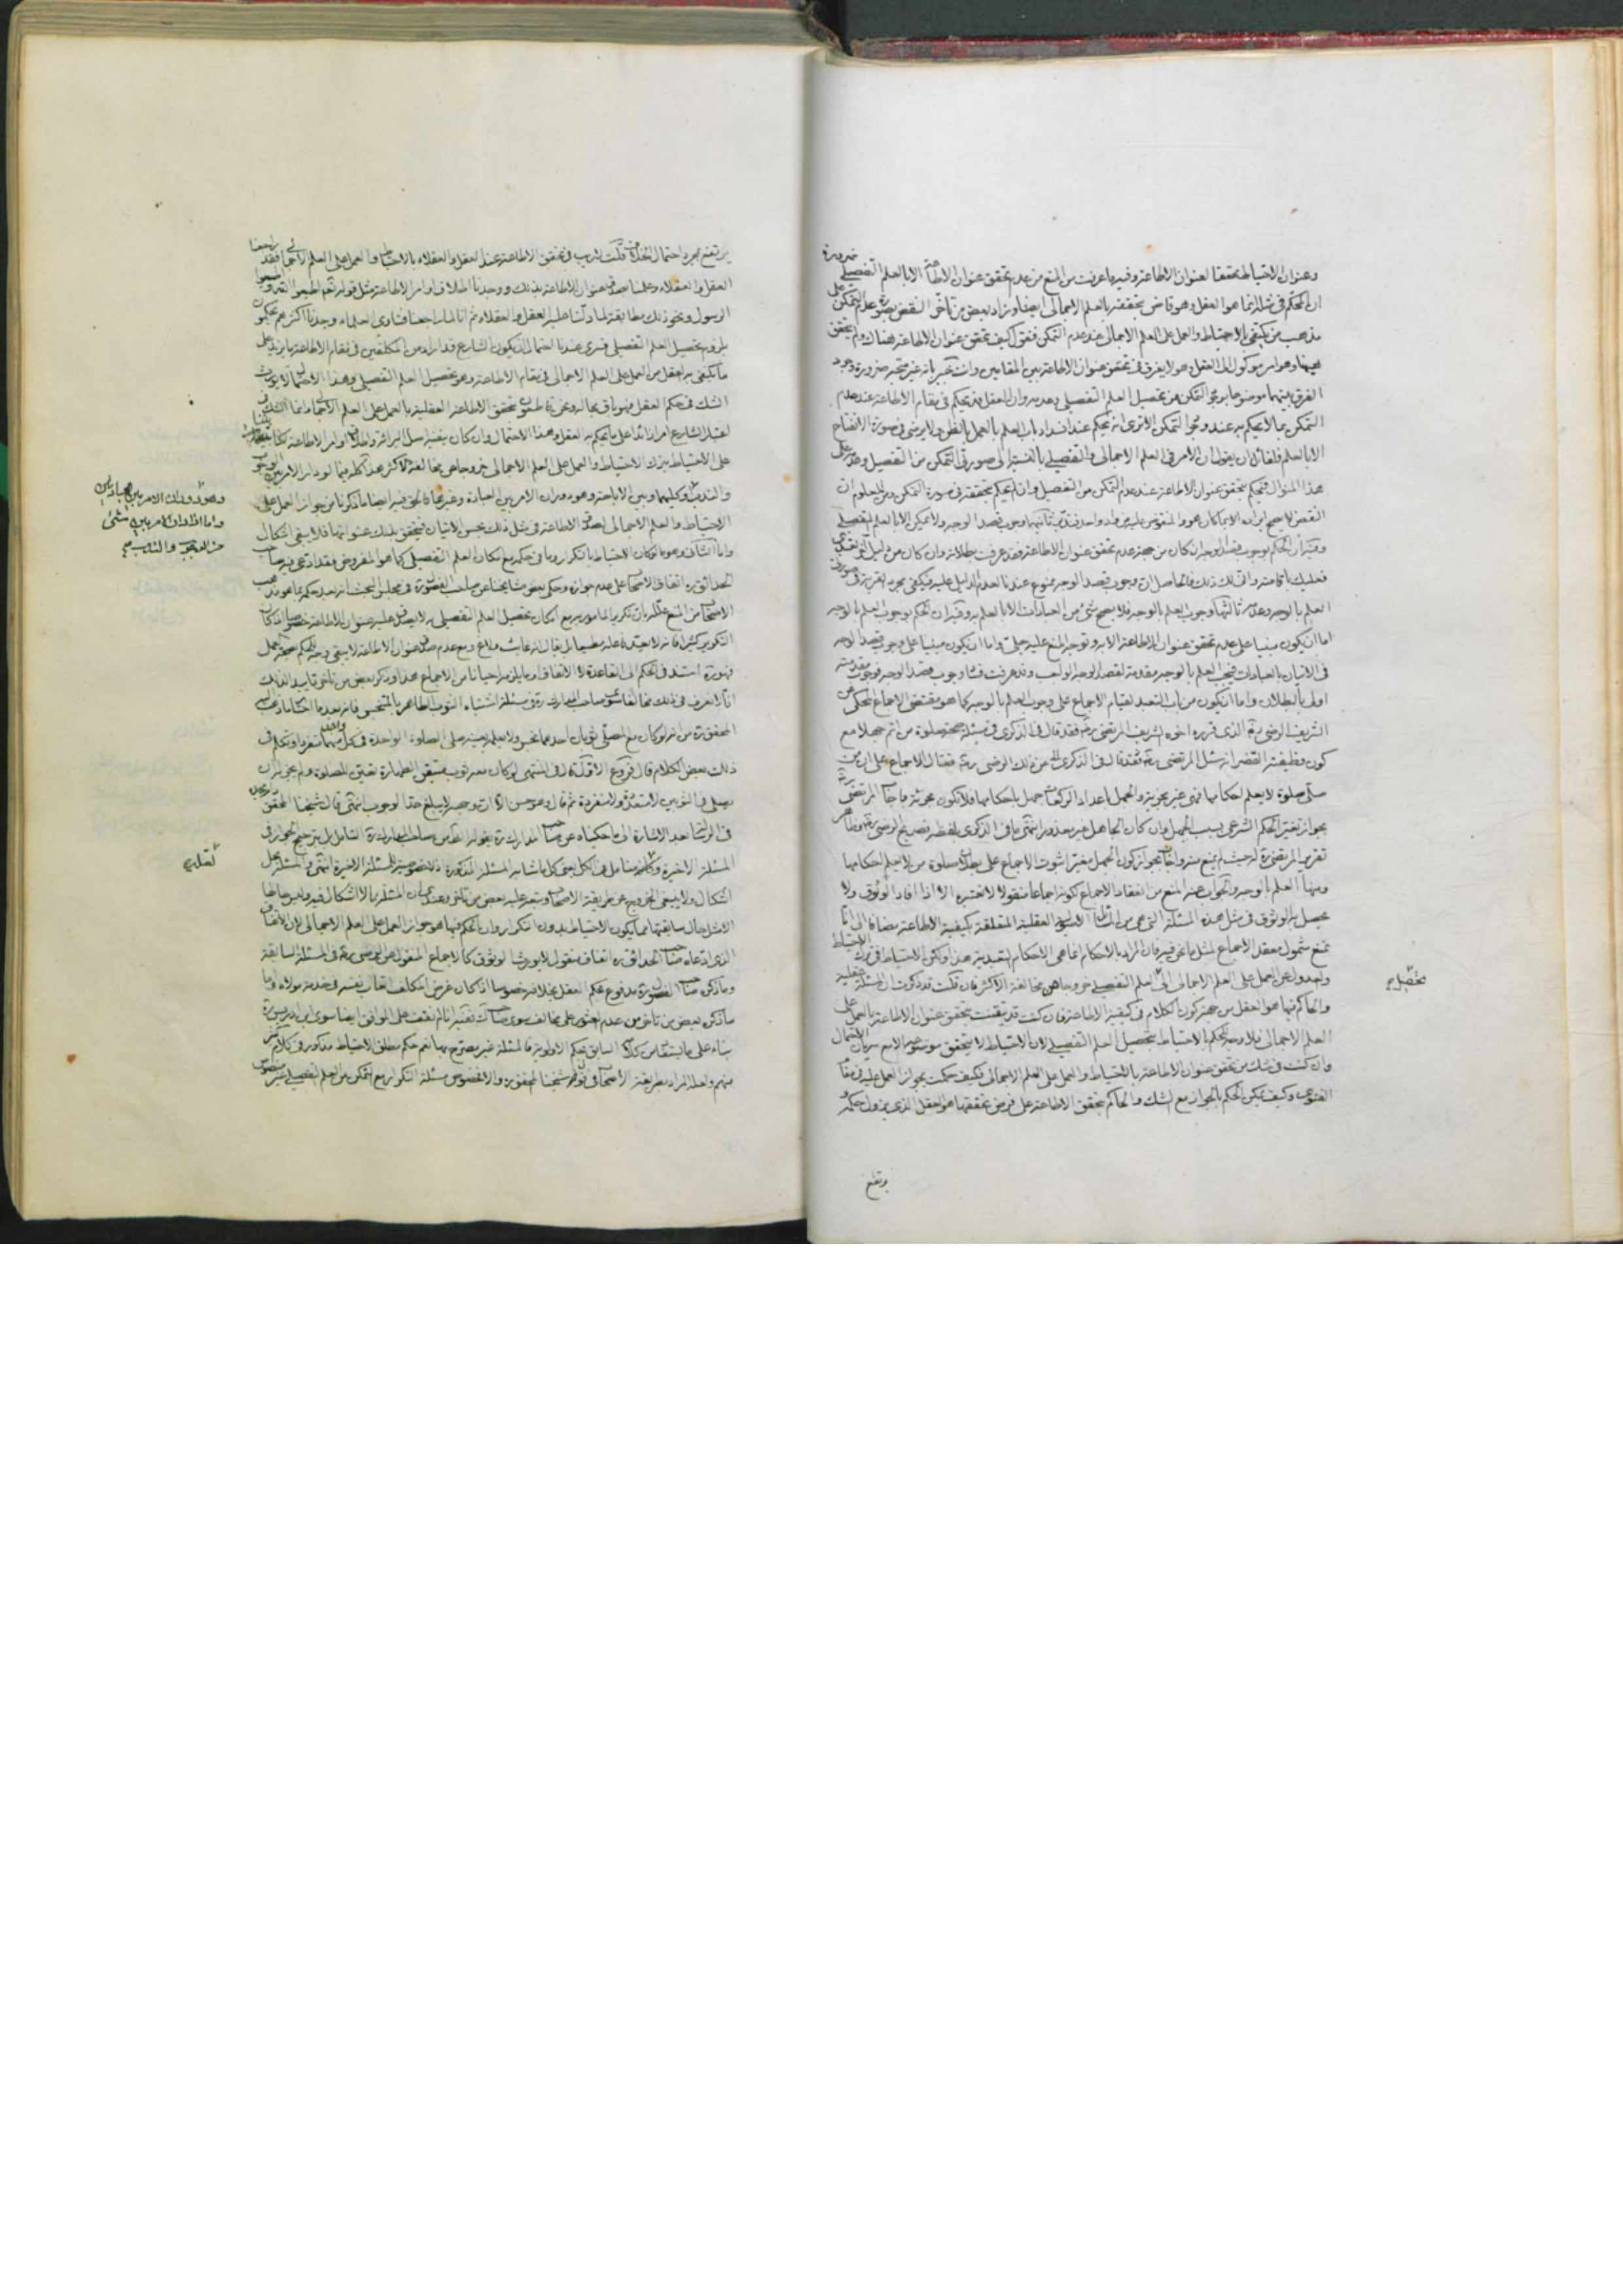 وعنوان الاحتياط محققا لعنوان الاطاعة وفيه ما عرفت من المنع من عدم تحقق عنوان الاطاعة الا بالعلم التفصيلي ضرورة
ان الحاكم في مثله انما هو العقل وهو قاض بتحققه بالعلم الاجمالي ايضا وزاد بعض من تاخر النقض بصورة عدم التمكن
مذهب من يكتفي بالاحتياط والعمل على العلم الاجمالي عند عدم التمكن فنقول كيف تحقق عنوان الاطاعة هناك ولم يتحقق
هيهنا وهو امر موكول الى العقل وهو لا يفرق في تحقق عنوان الاطاعة بين المقامين وانت خبير بانه غير متجه ضرورة وجود
الفرق بينهما موضوعا بوجود التمكن من تحصيل العلم التفصيلي وعدمه وان العقل قد يحكم في مقام الاطاعة عند عدم
التمكن بما لا يحكم به عند وجود التمكن الا ترى انه يحكم عند انسداد باب العلم بالعمل بالظن ولا يرضى في صورة الانفتاح
الا بالعلم فلقائل ان يقول ان الامر في العلم الاجمالي والتفصيلي بالنسبة الى صورتي التمكن من التفصيل وعدمه على
هذا المنوال فيحكم بتحقق عنوان الاطاعة عند عدم التمكن من التفصيل وان لم يحكم بتحققه في صورة التمكن ومن المعلوم ان
النقض لا يصح ايراده الا بما كان هو والمنقوض عليه من واد واحد ثانيها وجوب قصد الوجه ولا يمكن الا بالعلم التفصيلي
وفيه ان الحكم بوجوب قصد الوجه ان كان من جهة عدم تحقق عنوان الاطاعة فقد عرفت بطلانه وان كان من دليل
فعليك باقامته واني لك ذلك فالحاصل ان وجوب قصد الوجه ممنوع عندنا لعدم الدليل عليه فيكفي مجرد القربة في صورتي
العلم بالوجه وعدمه ثالثها وجوب العلم بالوجه فلا يصح شيء من العبادات الا بالعلم به وفيه ان الحكم بوجوب العلم بالوجه
اما ان يكون مبنيا على عدم تحقق عنوان الاطاعة الا به وتوجه المنع عليه جلي واما ان يكون مبنيا على وجوب قصد الوجه
في الاتيان بالعبادات فيجب العلم بالوجه مقدمة لقصد الوجه الواجب وقد عرفت فساد وجوب قصد الوجه فوجوب مقدمته
اولى بالبطلان واما ان يكون من باب التعبد لقيام الاجماع على وجوب العلم بالوجه كما هو مقتضى الاجماع المحكي عن
الشريف الرضي ره الذي قرره اخوه الشريف المرتضى ره فقد قال في الذكرى في مسئلة صحة صلوة من اتم جهلا مع
كون وظيفته القصر انه سئل المرتضى ره فقد قال في الذكرى من ذلك الرضي ره فقال الاجماع على ان من
صلى صلوة لا يعلم احكامها فهي غير مجزية والجهل باعداد الركعات جهل باحكامها فلا تكون مجزية فاجاب المرتضى ره
بجواز تغير الحكم الشرعي بسبب الجهل وان كان الجاهل غير معذور انتهى ما في الذكرى بلفظه فصريح الرضي ره وظاهر
تقرير المرتضى ره حيث لم يمنع منه واجاب بجواز كون الجهل مغيرا ثبوت الاجماع على بطلان صلوة من لا يعلم احكامها
ومنها العلم بالوجه والجواب عنه المنع من انعقاد الاجماع كونه اجماعا منقولا لا نعتبره الا اذا افاد الوثوق ولا
يحصل به الوثوق في مثل هذه المسئلة التي هي من المسائل العقلية المتعلقة بكيفية الاطاعة مضافا الى انا
نمنع شمول معقد الاجماع لمثل ما نحن فيه فان المراد بالاحكام انما هي الاحكام التعبدية هذا ولكن الاحتياط في ترك الاحتياط
والعدول عن العمل على العلم الاجمالي الى العلم التفصيلي خروجا عن مخالفة الاكثر فان قلت قد ذكرت ان المسئلة عقلية
والحاكم فيها هو العقل من جهة كون الكلام في كيفية الاطاعة فان كنت قد تيقنت بتحقق عنوان الاطاعة بالعمل على
العلم الاجمالي فلا وجه للحكم بالاحتياط بتحصيل العلم التفصيلي لان الاحتياط لا يتحقق موضوعه الا مع سريان الاحتمال
وان كنت في شك من تحقق عنوان الاطاعة بالاحتياط والعمل على العلم الاجمالي فكيف حكمت بجواز العمل عليه في مقام
الفتوى وكيف يمكن الحكم بالجواز مع الشك والحاكم بتحقق الاطاعة على فرض تحققها هو العقل الذي يزول حكمه و
يرتفع
بتحصيل
يرتفع بمجرد احتمال الخلاف قلت لا ريب في تحقق الاطاعة عند العقل والعقلاء بالاحتياط والعمل على العلم الاجمالي فقد راجعنا
العقل والعقلاء وعلمنا بصدق عنوان الاطاعة بذلك ووجدنا اطلاق اوامر الاطاعة مثل قوله تعم اطيعوا الله واطيعوا
الرسول ونحو ذلك مطابقة لما دلنا عليه العقل والعقلاء ثم انا لما راجعنا فتاوى العلماء وجدنا اكثرهم يحكمون
بلزوم تحصيل العلم التفصيلي فسرى عندنا احتمال ان يكون الشارع قد اراد من المكلفين في مقام الاطاعة ما يزيد على
ما يكتفي به العقل من العمل على العلم الاجمالي في مقام الاطاعة وهو تحصيل العلم التفصيلي وهذا الاحتمال لا يورث
الشك في حكم العقل فهو باق بحاله ونحن قاطعون بتحقق الاطاعة العقلية بالعمل على العلم الاجمالي وانما الشك في
اعتبار الشارع امرا زائدا على ما يحكم به العقل وهذا الاحتمال وان كان ينفيه اصل البرائة واطلاق اوامر الاطاعة لكنا
على الاحتياط بترك الاحتياط والعمل على العلم الاجمالي خروجا عن مخالفة الاكثر هذا كله فيما لو دار الامر بين الوجوب
والندب وكليهما وبين الاباحة وهو دوران الامر بين العبادة وغيرها فالحق فيه ايضا ما ذكرنا من جواز العمل على
الاحتياط والعلم الاجمالي لصدق الاطاعة في مثل ذلك بحسن الاتيان فيتحقق بذلك عنوانها فلا يبقى اشكال
واما الثاني وهو ما لو كان الاحتياط بالتكرار وما في حكمه مع امكان العلم التفصيلي كما هو المفروض فقد ادعى فيه صاحب
الحدائق ره اتفاق الاصحاب على عدم جوازه وحكى بعض مشايخنا عن صاحب الفصول ره في مجلس البحث انه بعد حكمه بما هو مذهب
الاصحاب من المنع علله بان تكرير المامور به مع امكان تحصيل العلم التفصيلي به لا يصدق عليه عنوان الاطاعة خصوصا اذا كان
التكرير كثيرا فانه لا يعد فاعله مطيعا بل يقال انه عابث ولاغ ومع عدم صدق عنوان الاطاعة لا يبقى وجه للحكم بصحة العمل
فهو ره استند في الحكم الى القاعدة لا الاتفاق وما يلزمه احيانا من الاجماع هذا وذكر بعض من تاخر تاييدا لذلك
انا لا نعرف في ذلك مخالفا سوى صاحب المدارك ره في مسئلة اشتباه الثوب الطاهر بالمتنجس فانه بعد ما اختار ما ذهب اليه
المحقق ره من انه لو كان مع المصلي ثوبان احدهما نجس ولا يعلمه بعينه صلى الصلوة الواحدة في كل واحد منهما منفردا وتكلم في
ذلك بعض الكلام قال فروع الاول قال في المنتهى لو كان معه ثوب متيقن الطهارة تعين للصلوة ولم يجز له ان
يصلي في الثوبين لا متعددة ولا منفردة ثم قال وهو حسن الا ان وجهه لا يبلغ حد الوجوب انتهى قال شيخنا المحقق
في الرسائل بعد الاشارة الى ما حكيناه عن صاحب المدارك ره بقوله نعم عن صاحب المدارك ره التامل بل ترجيح الجواز في
المسئلة الاخيرة ولعله متامل في الكل يعني كل ما شابه المسئلة المذكورة اذ لا خصوصية للمسئلة الاخيرة انتهى والمسئلة محل
اشكال ولا ينبغي الخروج عن طريقة الاصحاب
الامثل حال سابقتها مما يكون الاحتياط بدون التكرار وان الحكم فيها هو جواز العمل على العلم الاجمالي لان الاتفاق
الذي ادعاه صاحب الحدائق ره اتفاق منقول لا يورث الوثوق كالاجماع المنقول عن الرضي ره في المسئلة السابقة
وما ذكره صاحب الفصول ره مدفوع بحكم العقل بخلافه خصوصا اذا كان غرض المكلف اتعاب نفسه في خدمة مولاه واما
ما ذكره بعض من تاخر من عدم العثور على مخالف سوى صاحب المدارك ففيه انا لم نقف على الموافق ايضا سوى ابن ادريس ره
بناء على ما يستفاد من كلامه السابق بحكم الاولوية فالمسئلة غير مصرح بها نعم حكم مطلق الاحتياط مذكور في كلام كثير
منهم ولعله المراد بطريقة الاصحاب في قول شيخنا المحقق ره والا فخصوص مسئلة التكرار مع التمكن من العلم التفصيلي غير منصوص
وهو دوران الامر بين العبادتين
واما اذا دار الامر بين شيء
من الوجوب والندب
لعله